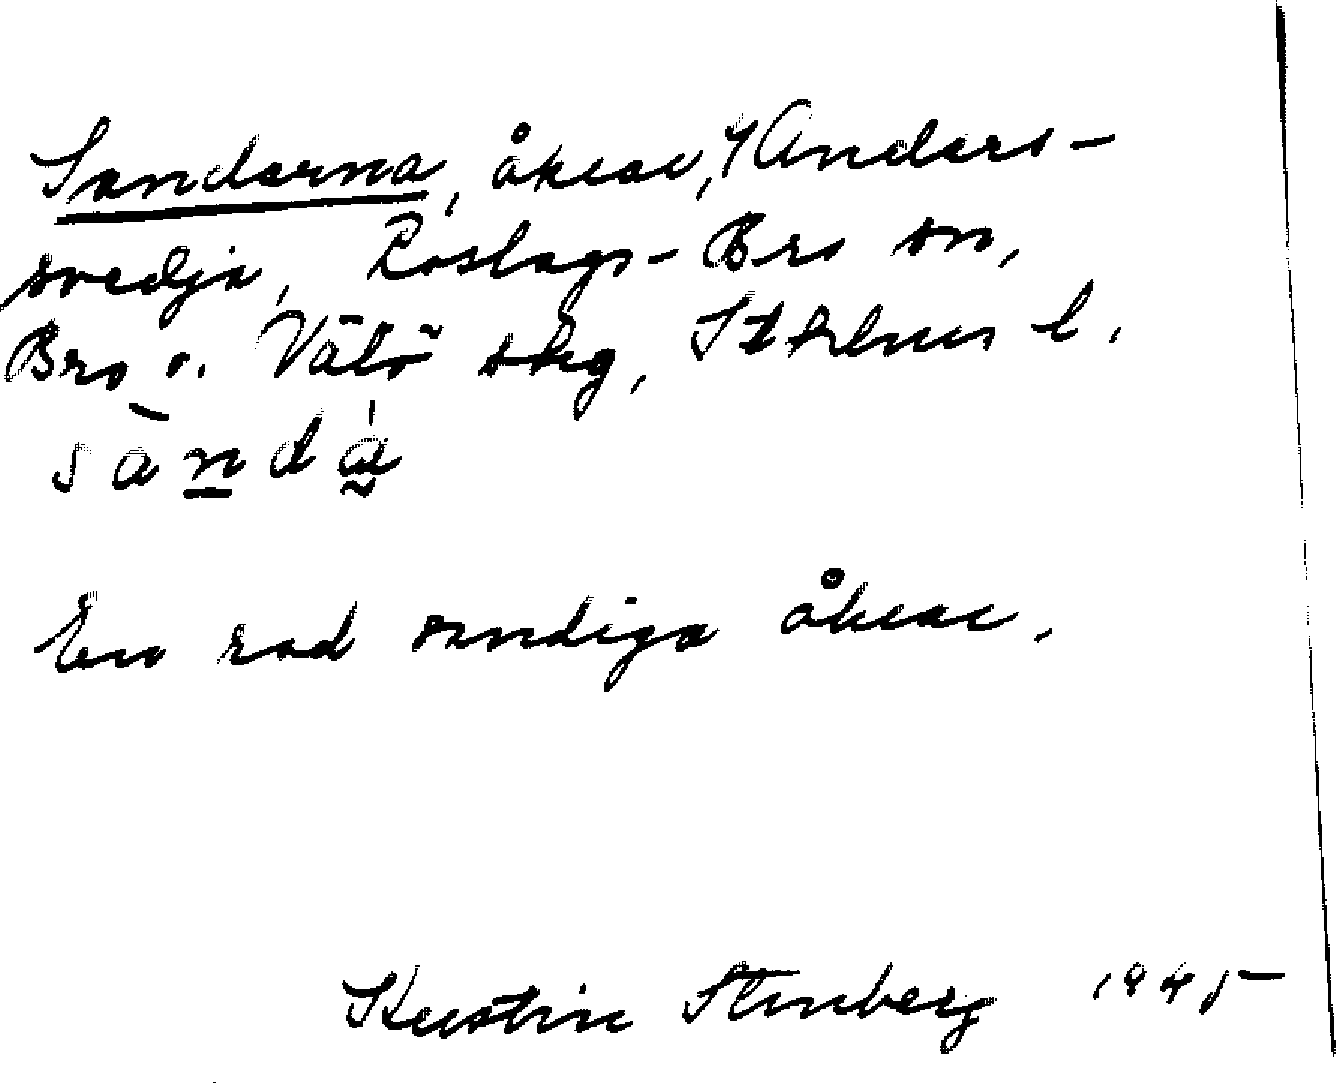 Sanderna, åkrar, Anders-
svedja, Roslags-Bro sn,
Bro o. Vätö skg, Sthlms l.
sàndá
En rad sandiga åkrar.
Kerstin Stenberg 1945